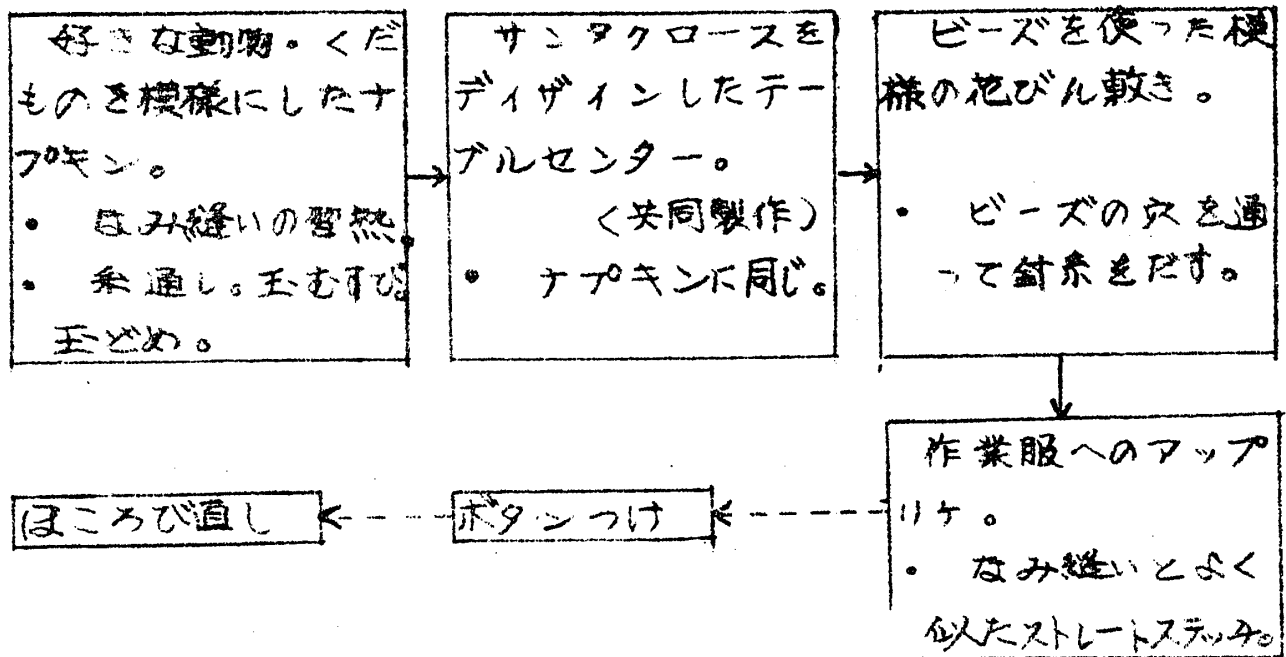 好きな動物・くだ
ものを模様にしたナ
プキン。
・ なみ縫いの習熟。
・ 糸通し。玉むすび。
玉どめ。
サンタクロースを
ディザインしたテー
ブルセンター。
(共同製作)
・ ナプキンに同じ。
ビーズを使った模
様の花びん敷き。
・ ビーズの穴を通
って針糸をだす。
作業服へのアップ
リケ。
・ なみ縫いとよく
似たストレートステッチ。
ボタンつけ
ほころび直し